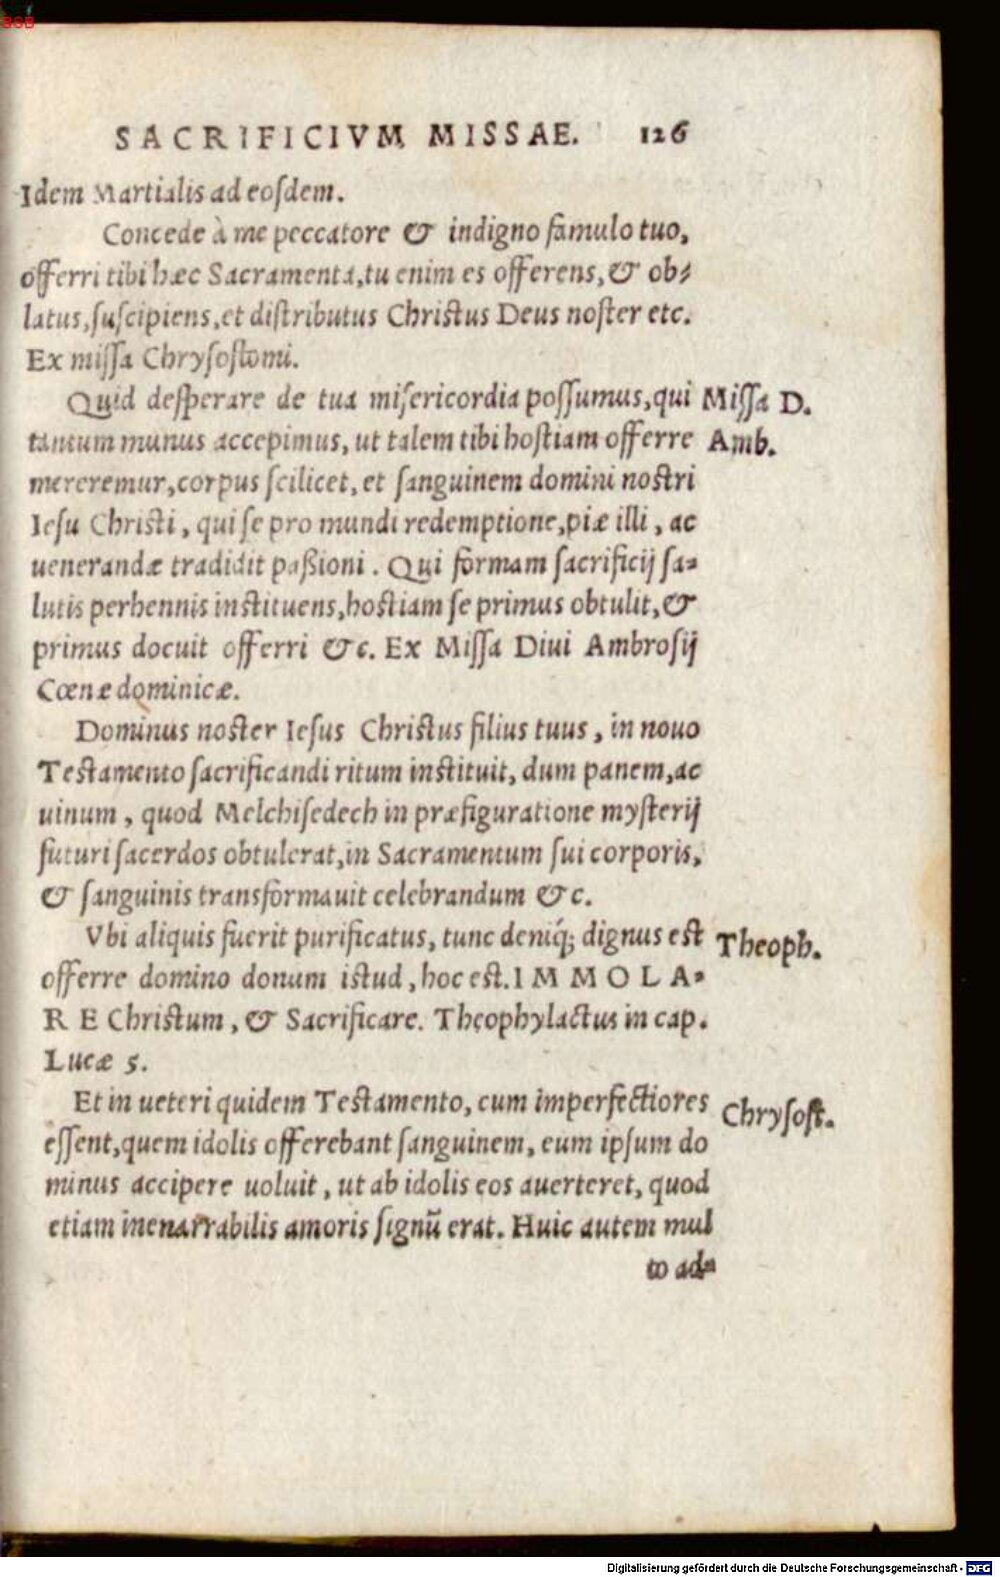 BSB
SACRIFICIVM MISSAE. 126
Idem Martialis ad eosdem.
Concede à me peccatore & indigno famulo tuo,
offerri tibi hæc Sacramenta, tu enim es offerens, & ob-
latus, suscipiens, et distributus Christus Deus noster etc.
Ex missa Chrysostomi.
Quid desperare de tua misericordia possumus, qui
Missa D.
tantum munus accepimus, ut talem tibi hostiam offerre
Amb.
mereremur, corpus scilicet, et sanguinem domini nostri
Iesu Christi, qui se pro mundi redemptione, piæ illi, ac
uenerandæ tradidit paßioni. Qui formam sacrificij sa-
lutis perhennis instituens, hostiam se primus obtulit, &
primus docuit offerri &c. Ex Missa Diui Ambrosij
Cœnæ dominicæ.
Dominus noster Iesus Christus filius tuus, in nouo
Testamento sacrificandi ritum instituit, dum panem, ac
uinum, quod Melchisedech in præfiguratione mysterij
futuri sacerdos obtulerat, in Sacramentum sui corporis,
& sanguinis transformauit celebrandum &c.
Vbi aliquis fuerit purificatus, tunc deniq; dignus est
Theoph.
offerre domino donum istud, hoc est. IMMOLA-
RE Christum, & Sacrificare. Theophylactus in cap.
Lucæ 5.
Et in ueteri quidem Testamento, cum imperfectiores
Chrysost.
essent, quem idolis offerebant sanguinem, eum ipsum do
minus accipere uoluit, ut ab idolis eos auerteret, quod
etiam inenarrabilis amoris signū erat. Huic autem mul
to ad-
Digitalisierung gefördert durch die Deutsche Forschungsgemeinschaft - DFG